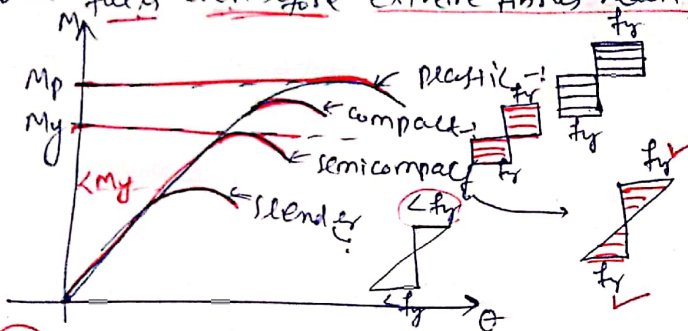 extreme fibres
M
Mp
My
<My
plastic -
compact →
semicompact
slender
fy
fy
fy
fy
fy
fy
<fy
<fy
θ